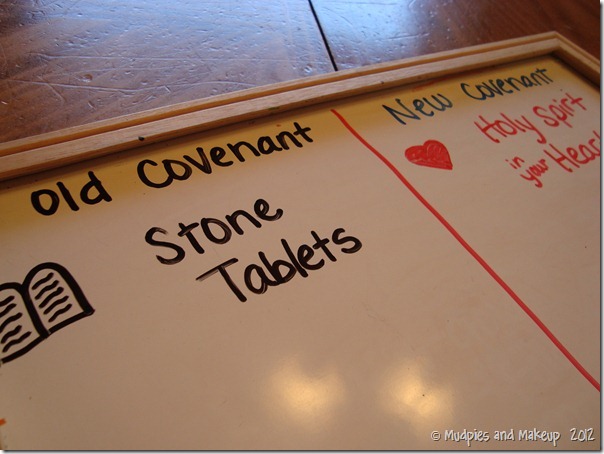 Old Covenant
Stone
Tablets
New Covenant
Holy Spirt
in your Heart
© Mudpies and Makeup 2012